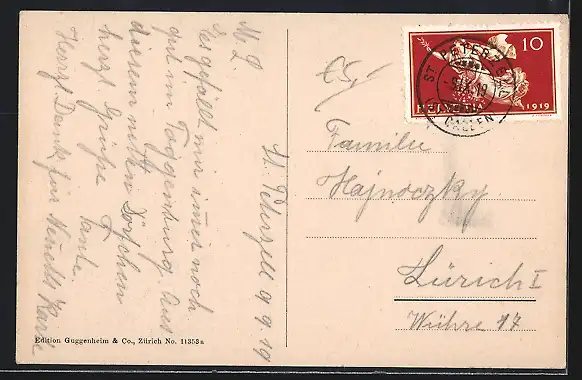 St. Peterzell 9.9.19
M. L.
Es gefällt mir immer noch
gut im Toggenburg. Aus
diesem netten Dörfchen
herzl. Grüße
Tante
Herzl. Dank für Karte
Edition Guggenheim & Co., Zürich No. 11353a
10
HELVETIA
1919
ST. PETERZELL
GALLEN
Familie
Hajnoczky
Zürich I
Wühre 17